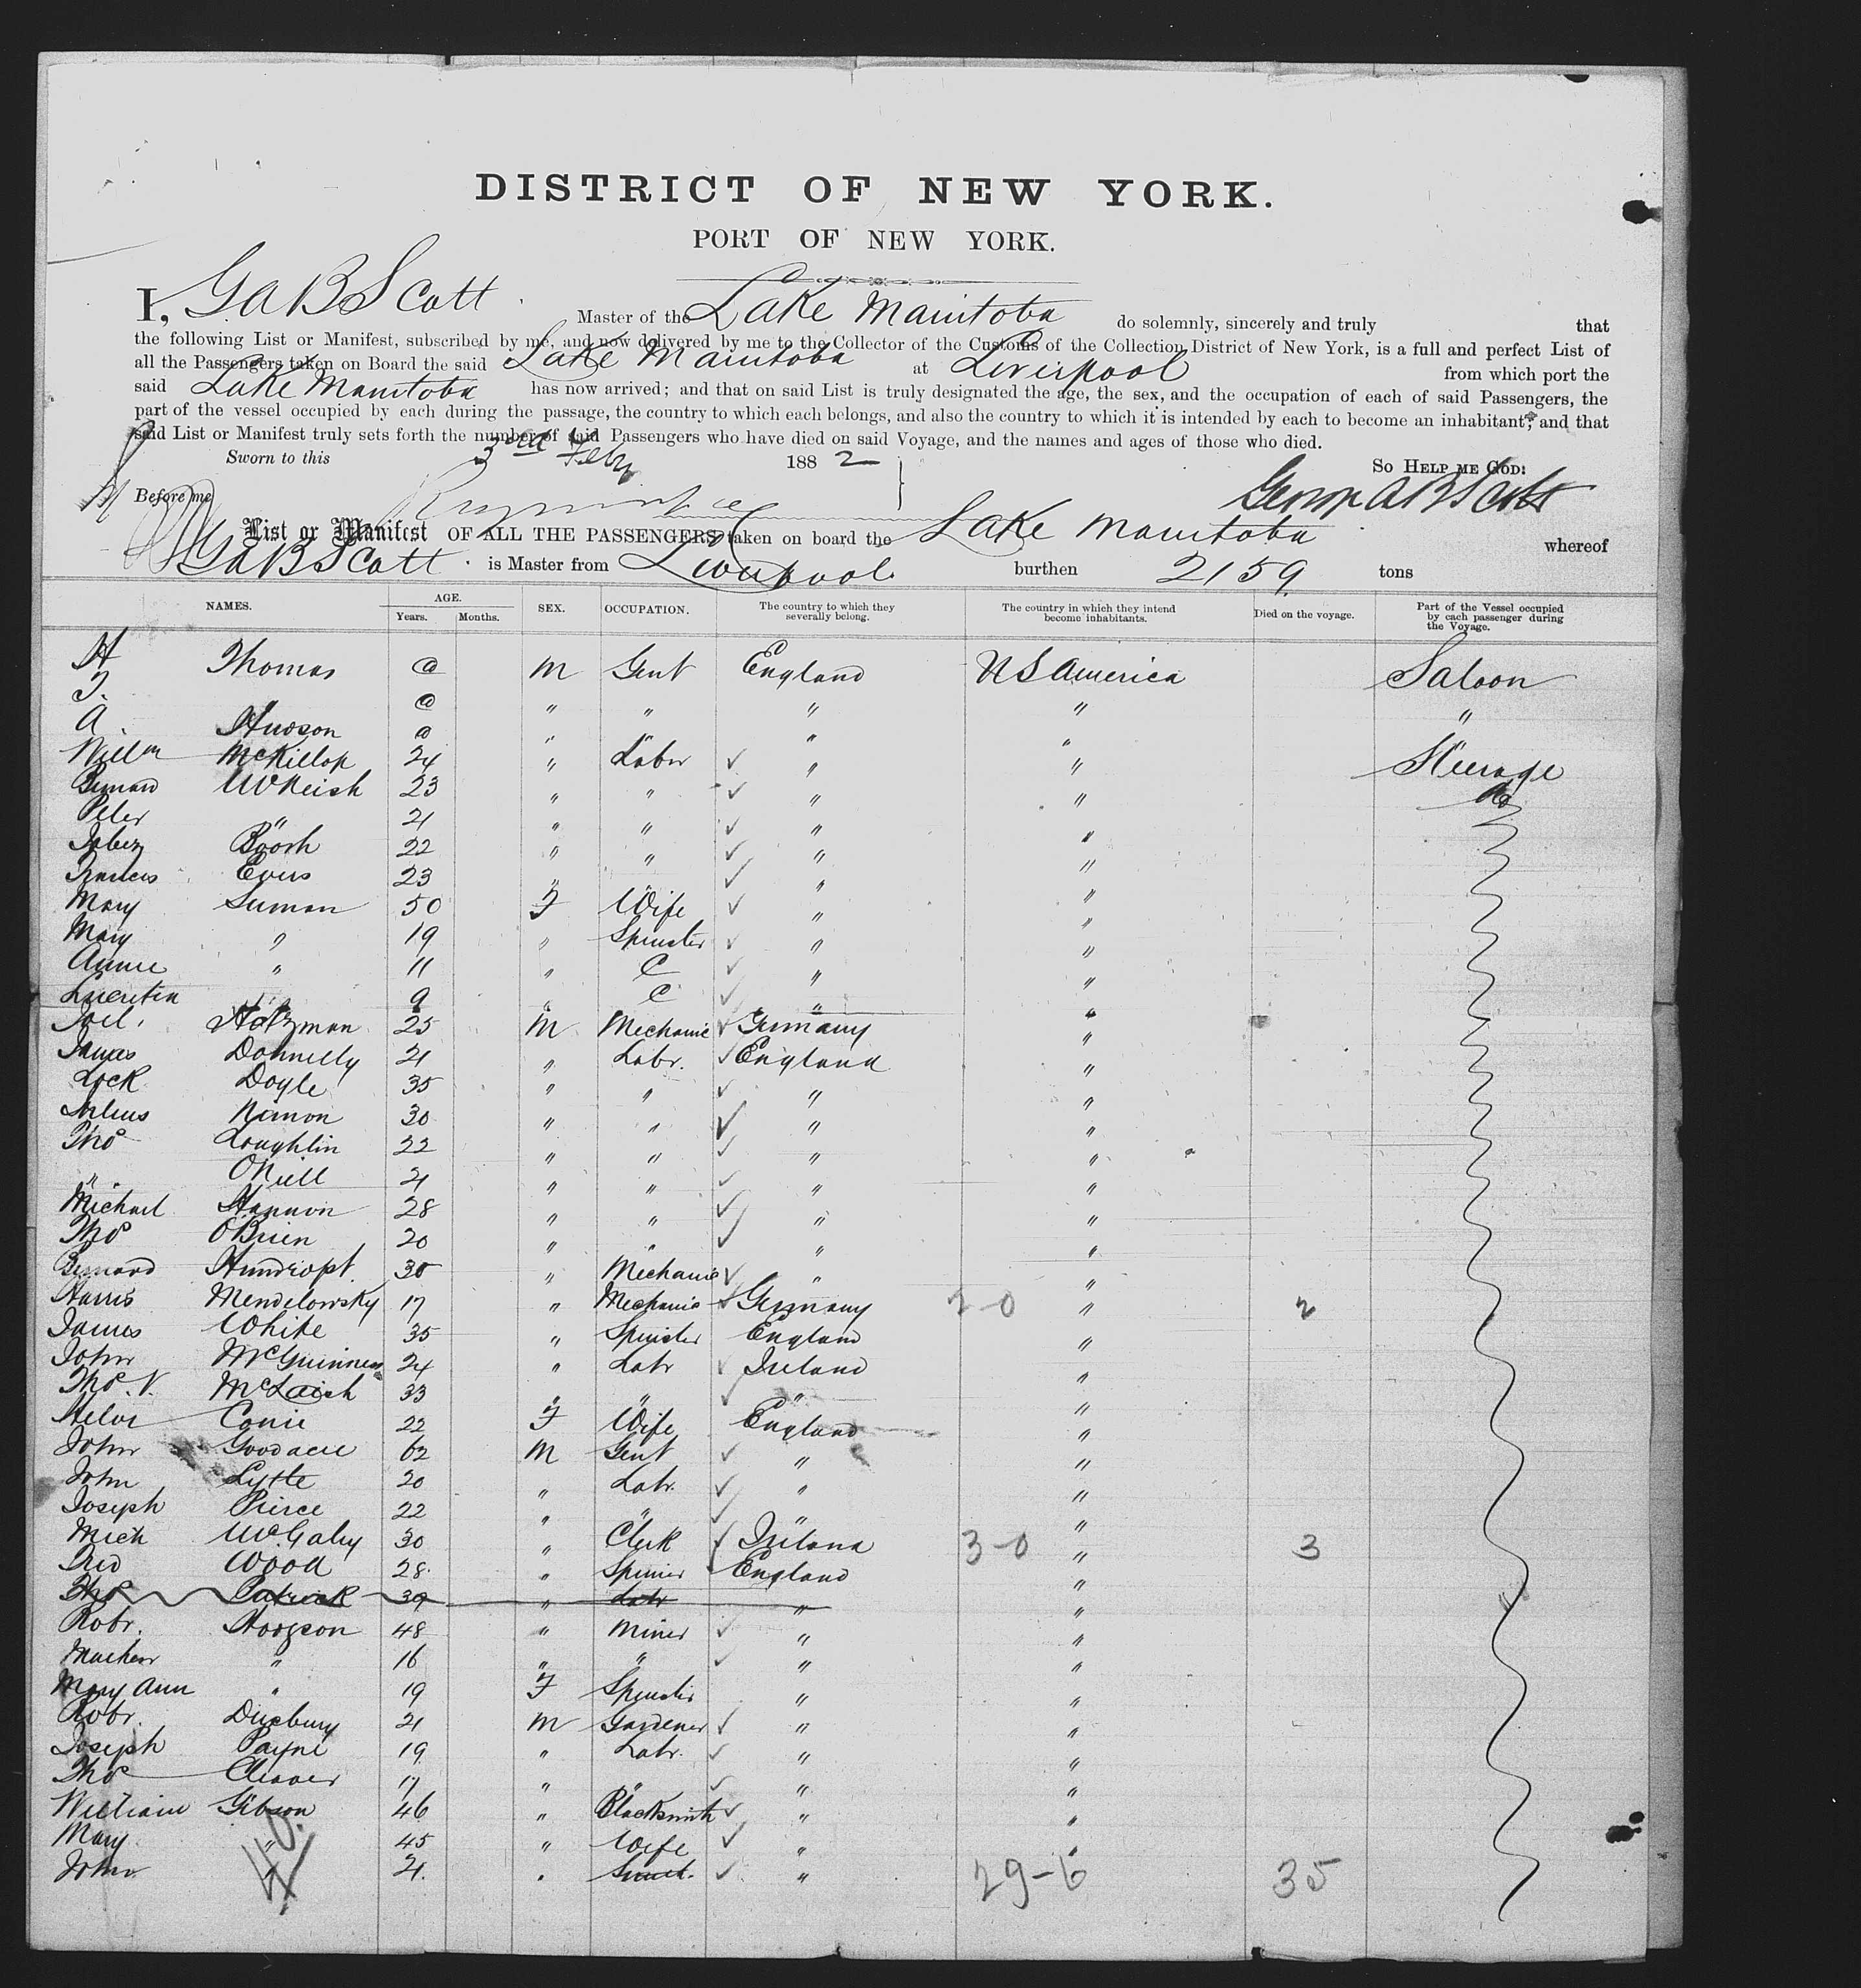 DISTRICT OF NEW YORK.
PORT OF NEW YORK.
I, G A B Scott Master of the Lake Manitoba do solemnly, sincerely and truly that
the following List or Manifest, subscribed by me, and now delivered by me to the Collector of the Customs of the Collection District of New York, is a full and perfect List of
all the Passengers taken on Board the said Lake Manitoba at Liverpool from which port the
said Lake Manitoba has now arrived; and that on said List is truly designated the age, the sex, and the occupation of each of said Passengers, the
part of the vessel occupied by each during the passage, the country to which each belongs, and also the country to which it is intended by each to become an inhabitant; and that
said List or Manifest truly sets forth the number of said Passengers who have died on said Voyage, and the names and ages of those who died.
Sworn to this 3rd Feby 1882 So Help me God:
Before me George A B Scott
List or Manifest OF ALL THE PASSENGERS taken on board the Lake Manitoba whereof
G A B Scott is Master from Liverpool burthen 2159 tons
NAMES. AGE. Years. Months. SEX. OCCUPATION. The country to which they severally belong. The country in which they intend become inhabitants. Died on the voyage. Part of the Vessel occupied by each passenger during the Voyage.
H Thomas @ M Gent England U S America Saloon
T. @ " " " " "
A. Hudson @ " " " "
Willm McKillop 24 " Labr " " Steerage
Bernard 23 " " " " do
Peter " 21 " " " "
Jabez Booth 22 " " " "
Francis Evers 23 " " " "
Mary 50 F Wife " "
Mary " 19 " Spinster " "
Annie " 11 " C " "
Lucretia " 9 " C " "
Joel. Holzman 25 M Mechanic Germany "
James Donnelly 21 " Labr. England "
Doyle 35 " " " "
Julius 30 " " " "
Thos Loughlin 22 " " " "
" ONeill 21 " " " "
Michael Hannon 28 " " " "
Thos OBrien 20 " " " "
Bernard 30 " Mechanic " "
Harris Mendelowsky 17 " Mechanic Germany 2-0 " 2
James White 35 " England "
John McGuinness 24 " Labr Ireland "
Thos. 33 " " " "
22 F Wife England "
John Goodacre 62 M Gent " "
John Lytle 20 " Labr. " "
Joseph Pierce 22 " " " "
Mich 30 " Clerk Ireland 3-0 " 3
Fred Wood 28 " England "
Thos Patrick 39 " Labr " "
Robr. Hodgson 48 " Miner " "
" 16 " " " "
Mary Ann " 19 F Spinster " "
Robr. Duxbury 21 M Gardener " "
Joseph Payne 19 " Labr. " "
Thos Cleaver 17 " " " "
William Gibson 46 " Blacksmith " "
Mary " 45 " Wife " "
John " 21. " " 29-6 35
40.